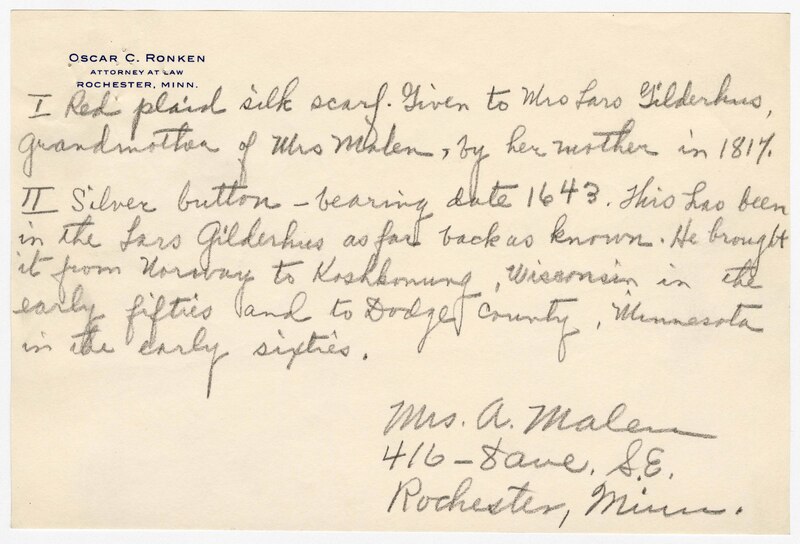 OSCAR C. RONKEN
ATTORNEY AT LAW
ROCHESTER, MINN.
I Red plaid silk scarf. Given to Mrs Lars Gilderhus,
grandmother of Mrs Malen, by her mother in 1817.
II Silver button - bearing date 1643. This has been
in the Lars Gilderhus as far back as known. He brought
it from Norway to Koshkonung, Wisconsin in the
early fifties and to Dodge county, Minnesota
in the early sixties.
Mrs. A. Malen
416 - 8 ave. S.E.
Rochester, Minn.